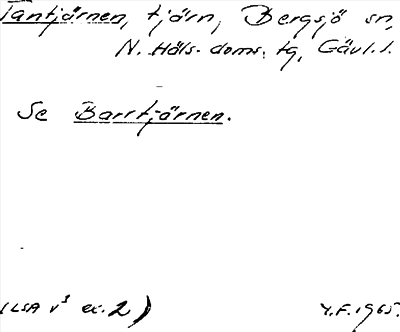 Tantjärnen, tjärn, Bergsjö sn,
N. Häls. doms. tg, Gävl. l.
Se Barrtjärnen.
(LSA v³ ex. 2) Y.F. 1965.